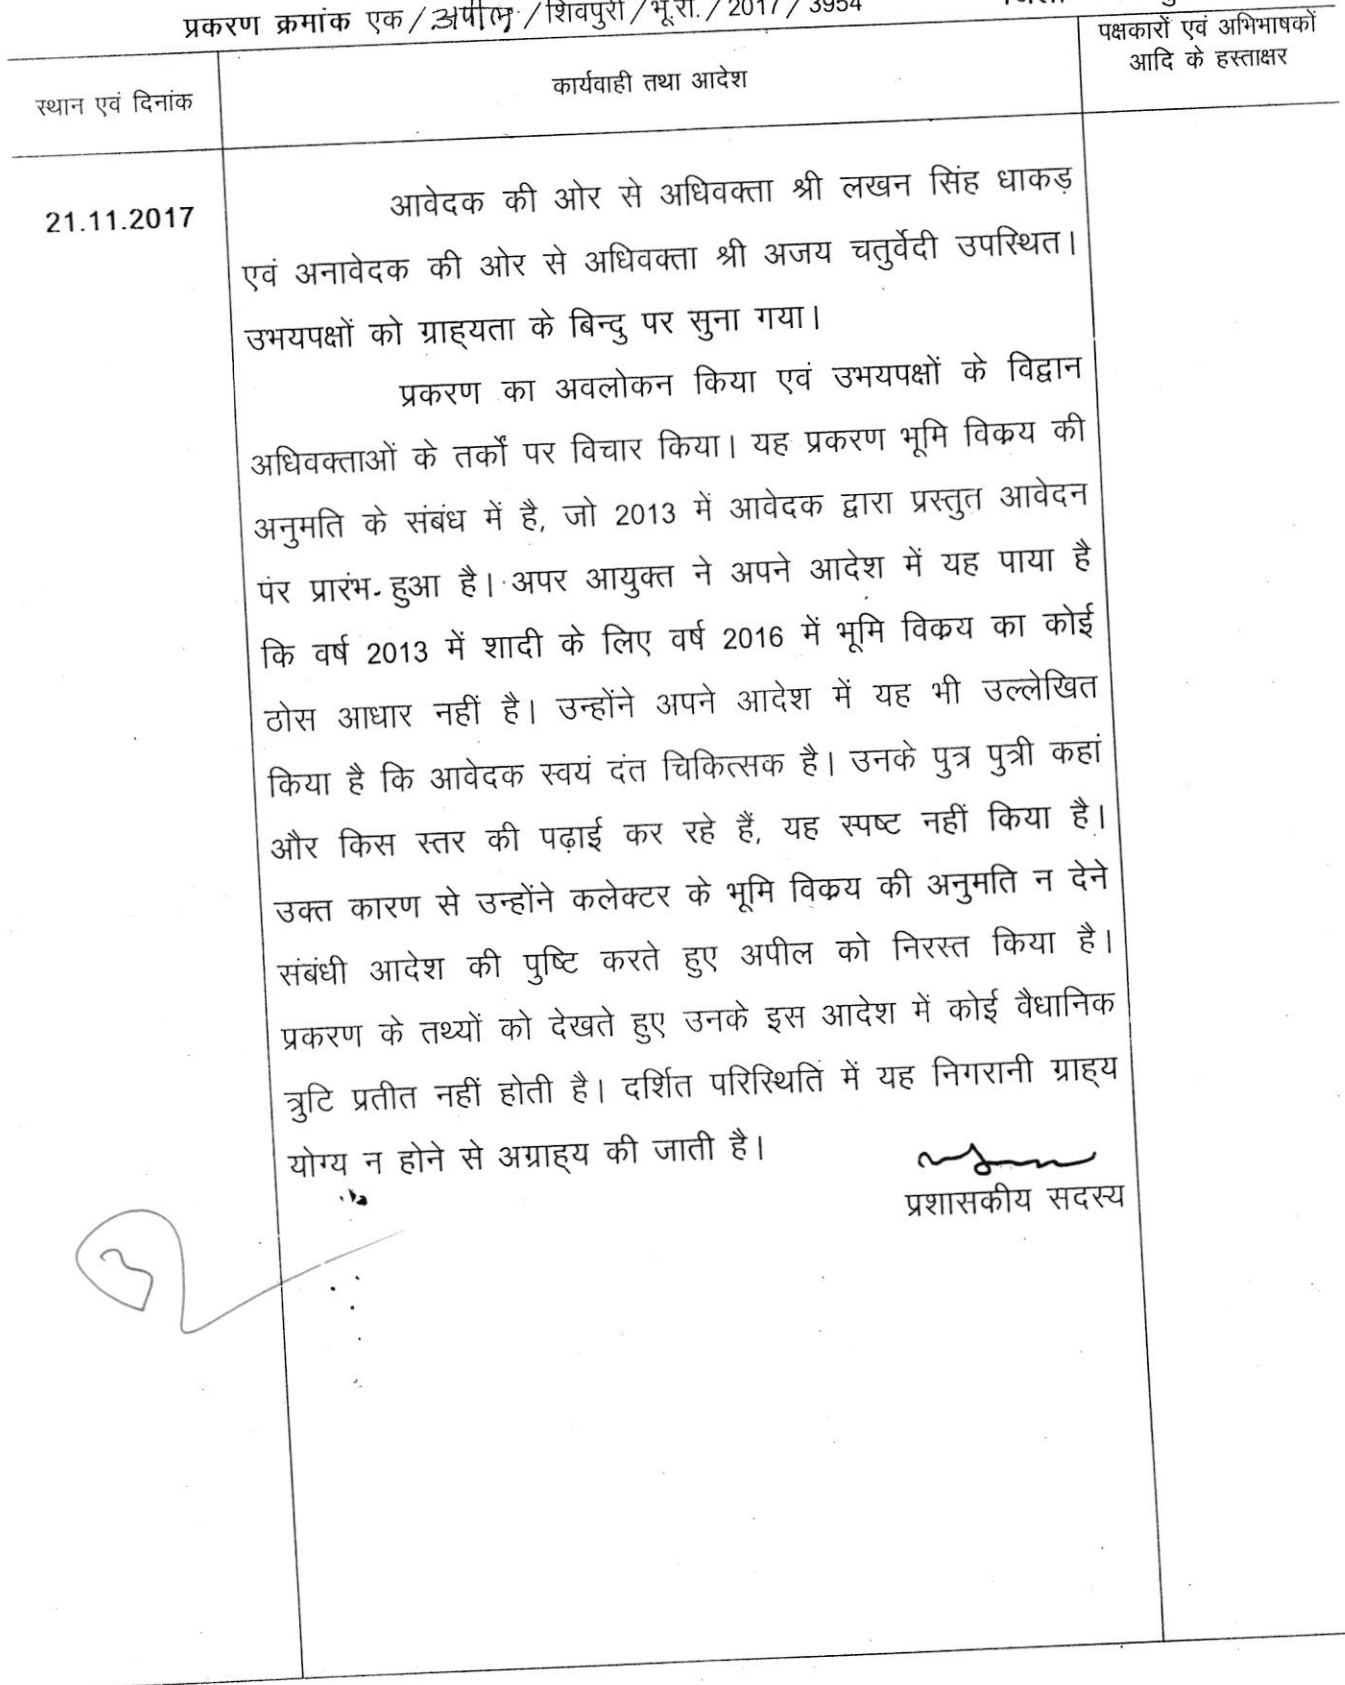 प्रकरण क्रमांक एक/अपील/शिवपुरी/भू.रा./2017/3954
स्थान एवं दिनांक
कार्यवाही तथा आदेश
पक्षकारों एवं अभिभाषकों
आदि के हस्ताक्षर
21.11.2017
आवेदक की ओर से अधिवक्ता श्री लखन सिंह धाकड़
एवं अनावेदक की ओर से अधिवक्ता श्री अजय चतुर्वेदी उपस्थित।
उभयपक्षों को ग्राह्यता के बिन्दु पर सुना गया।
प्रकरण का अवलोकन किया एवं उभयपक्षों के विद्वान
अधिवक्ताओं के तर्कों पर विचार किया। यह प्रकरण भूमि विकय की
अनुमति के संबंध में है, जो 2013 में आवेदक द्वारा प्रस्तुत आवेदन
पर प्रारंभ हुआ है। अपर आयुक्त ने अपने आदेश में यह पाया है
कि वर्ष 2013 में शादी के लिए वर्ष 2016 में भूमि विकय का कोई
ठोस आधार नहीं है। उन्होंने अपने आदेश में यह भी उल्लेखित
किया है कि आवेदक स्वयं दंत चिकित्सक है। उनके पुत्र पुत्री कहां
और किस स्तर की पढ़ाई कर रहे हैं, यह स्पष्ट नहीं किया है।
उक्त कारण से उन्होंने कलेक्टर के भूमि विकय की अनुमति न देने
संबंधी आदेश की पुष्टि करते हुए अपील को निरस्त किया है।
प्रकरण के तथ्यों को देखते हुए उनके इस आदेश में कोई वैधानिक
त्रुटि प्रतीत नहीं होती है। दर्शित परिस्थिति में यह निगरानी ग्राह्य
योग्य न होने से अग्राह्य की जाती है।
प्रशासकीय सदस्य